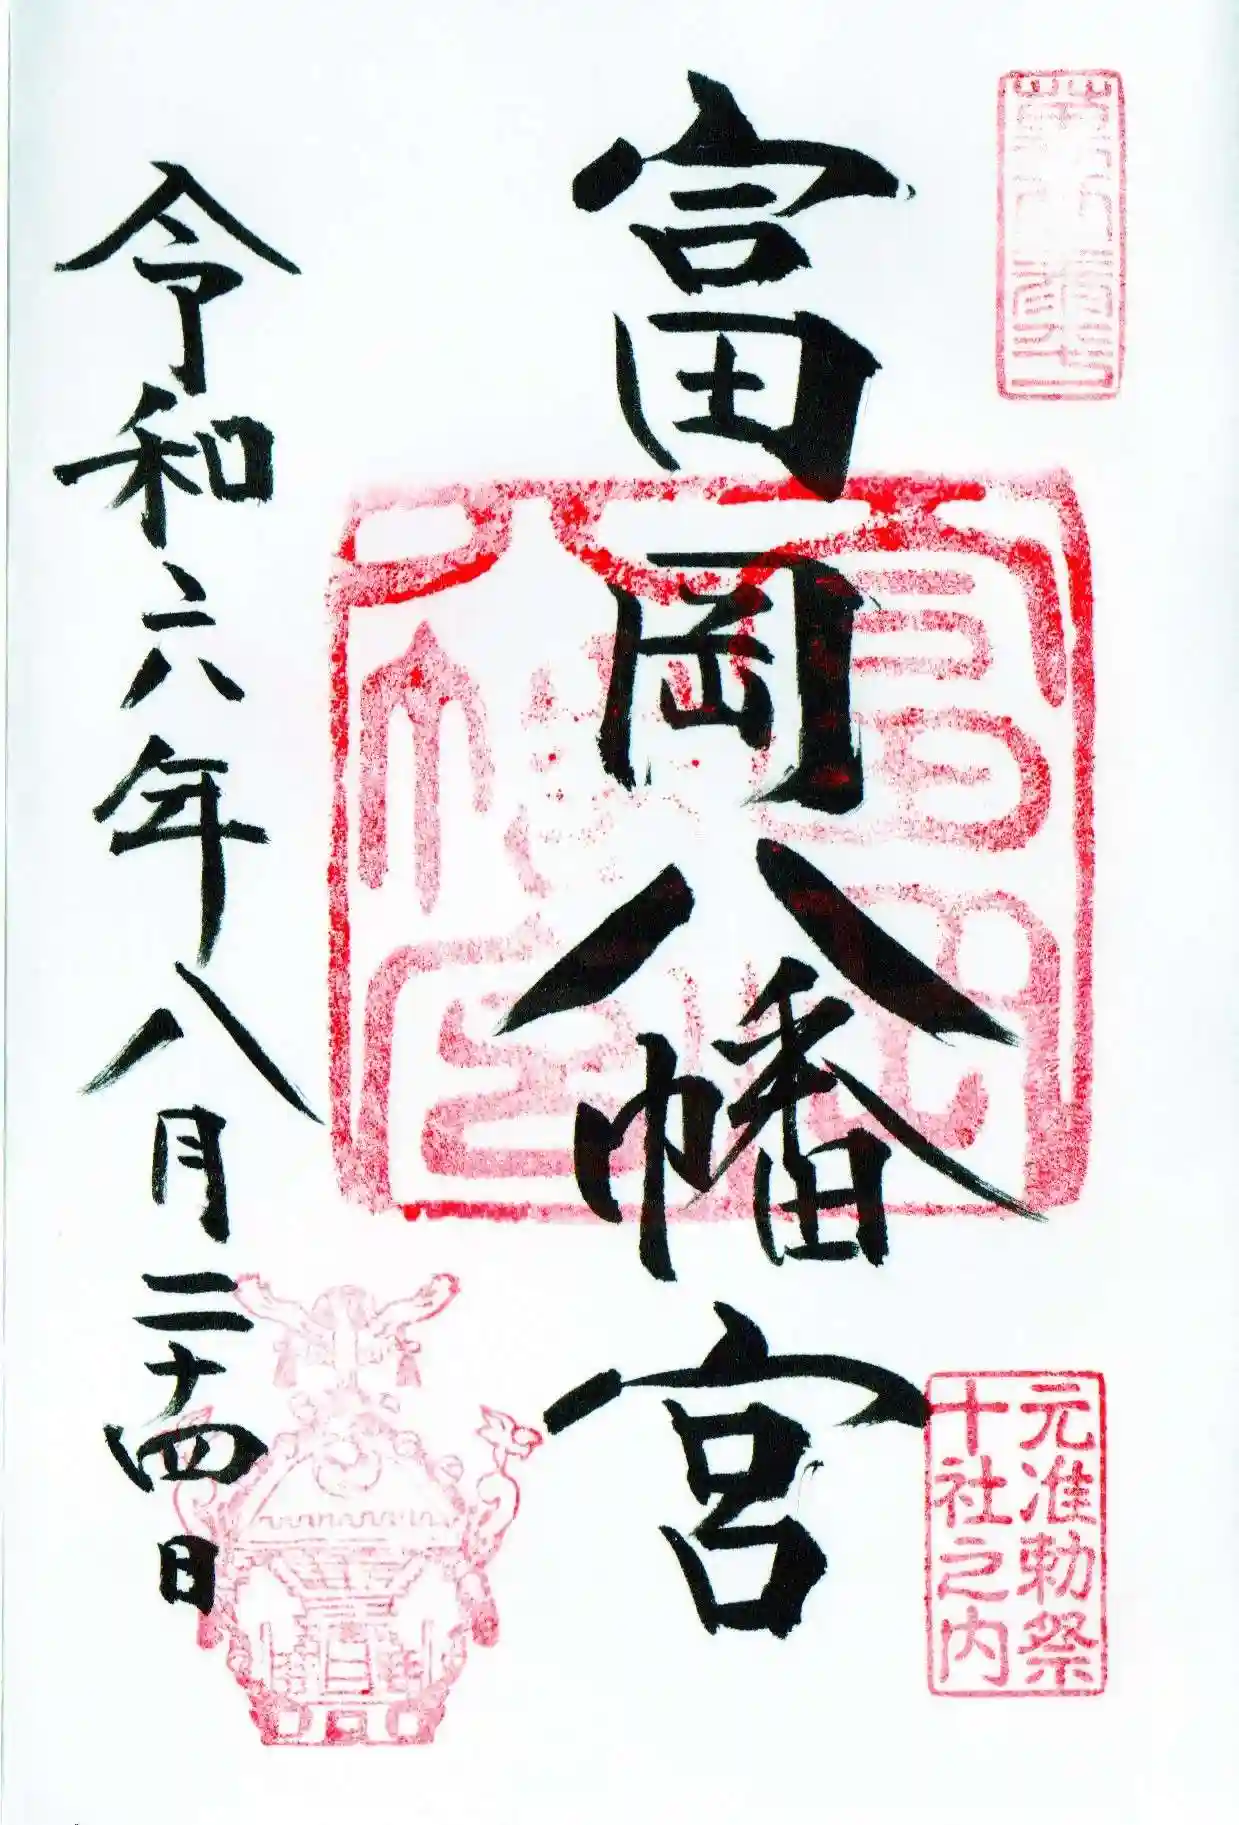 富岡八幡宮
元准勅祭
十社之内
令和六年八月二十四日